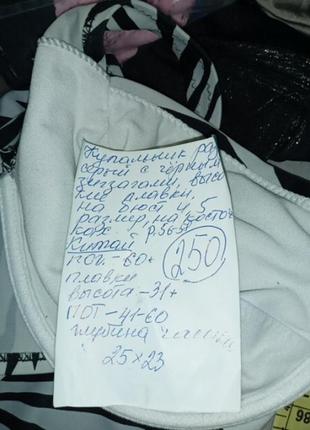 Купальник раз
серый с чёрными
зигзагами, высо
кие плавки,
на бюст 4, 5
размер, на косточ
р.56-58
Китай
ПОГ. - 60+
250
плавки
высота - 31+
ПОТ - 41-60
глубина чашки
25×23
98